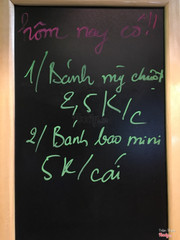 hôm nay có!!
1/ Bánh mỳ chuột
2,5K/c
2/ Banh bao mini
5K/cái